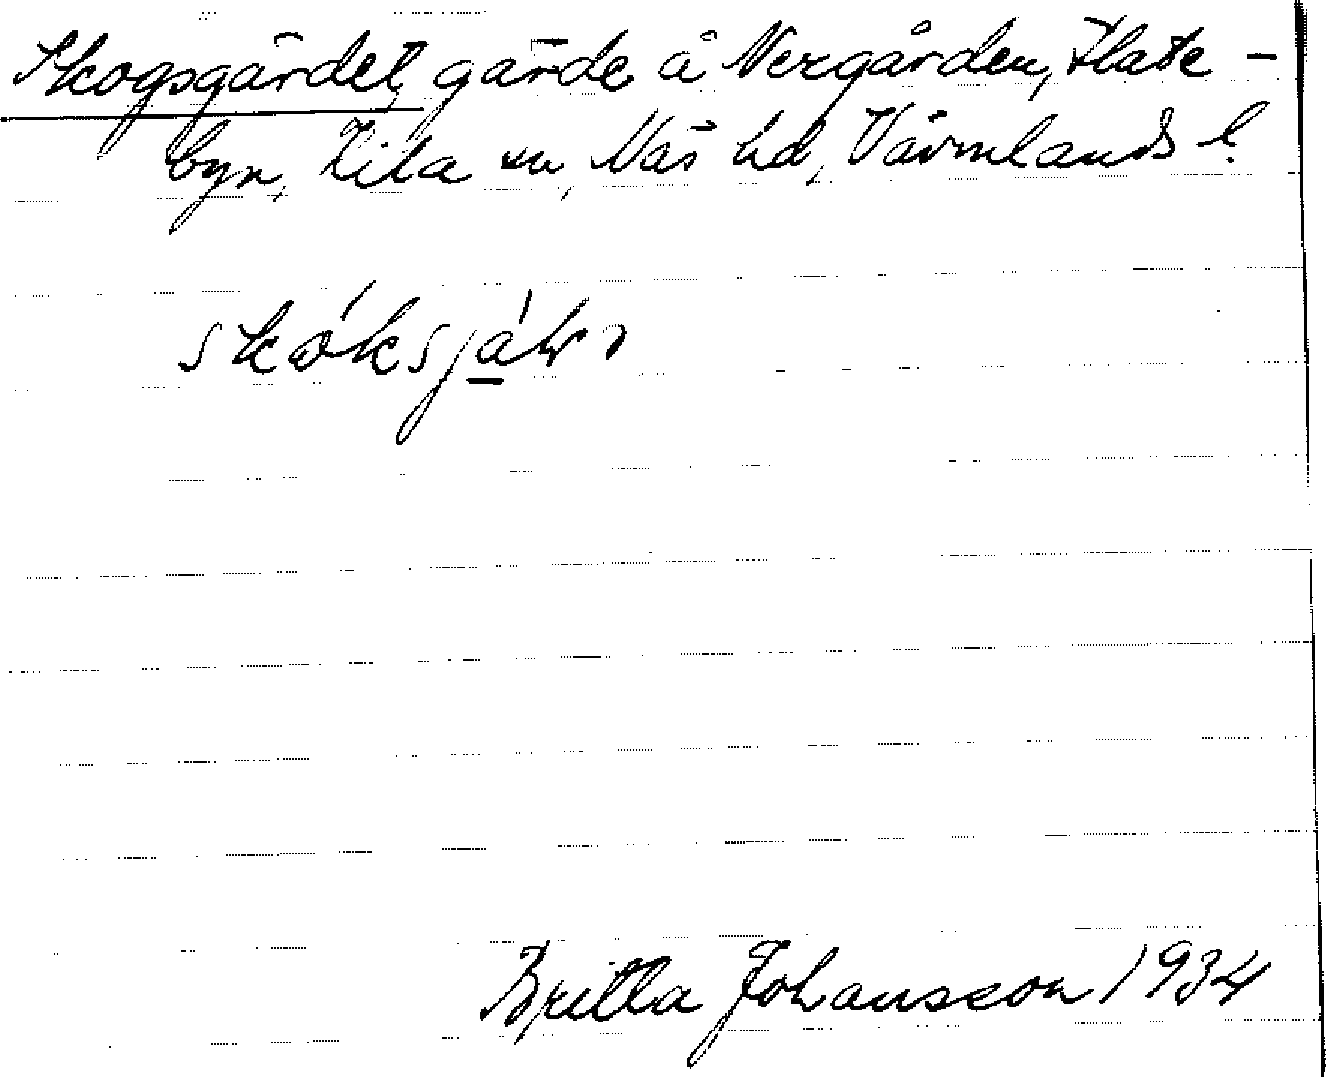 Skogsgärdet, gärde å Nergården, Flate-
byn, Kila sn, Näs hd, Värmlands l.
Britta Johansson 1934